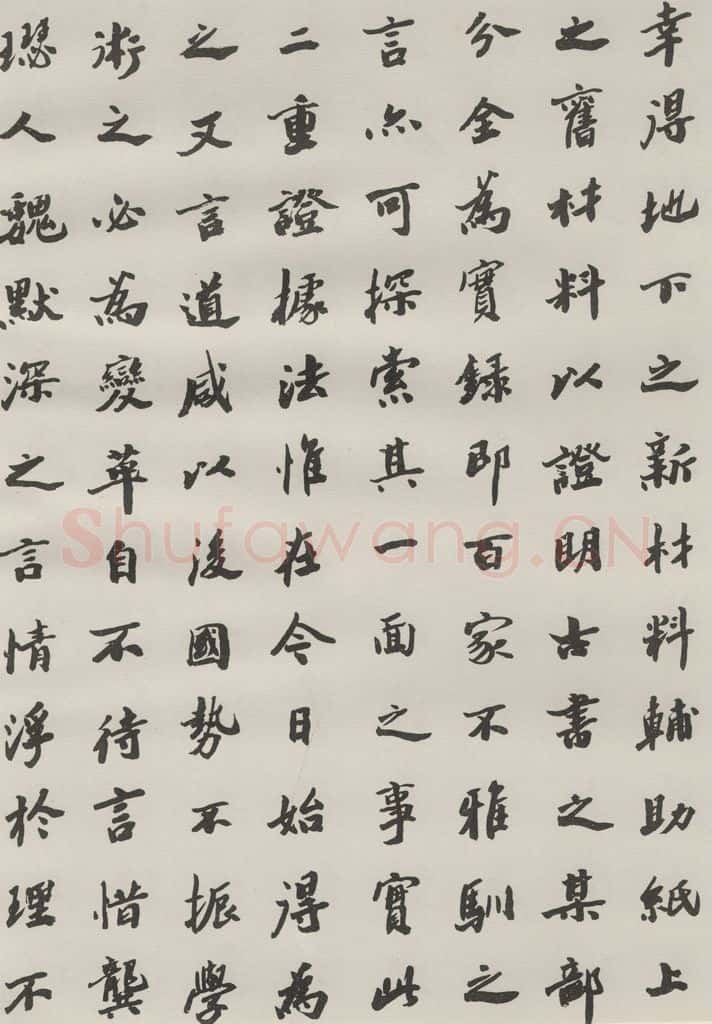 幸得地下之新材料輔助紙上
之舊材料以證明古書之某部
分全為實録即百家不雅馴之
言亦可探索其一面之事實此
二重證據法惟在今日始得為
之又言道咸以後國勢不振學
術之必為變革自不待言惜龔
璱人魏默深之言情浮於理不
Shufawang.CN